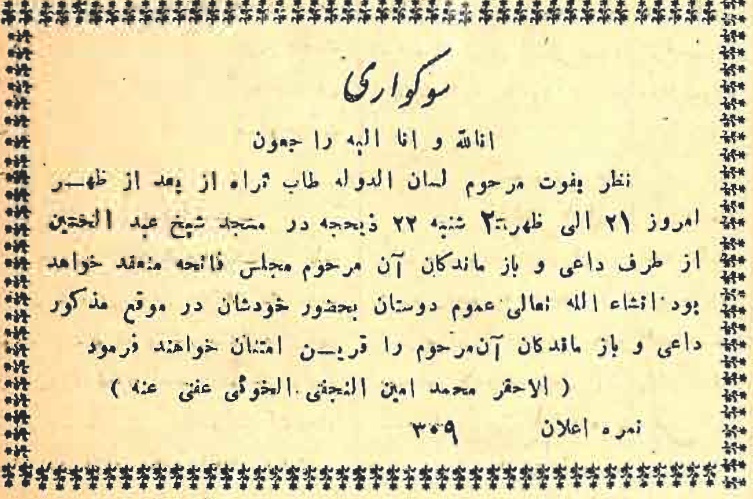 سوکواری
انالله و انا الیه راجعون
نظر بفوت مرحوم لسان الدوله طاب ثراه از بعد از ظهر
امروز ۲۱ الی ظهر ۲ شنبه ۲۲ ذیحجه در مسجد شیخ عبد الحسین
از طرف داعی و باز ماندکان آن مرحوم مجلس فاتحه منعقد خواهد
بود انشاء الله تعالی عموم دوستان بحضور خودشان در موقع مذکور
داعی و باز ماندکان آن مرحوم را قرین امتنان خواهند فرمود
( الاحقر محمد امین النجفی الخوئی عفی عنه )
نمره اعلان ۳۰۹